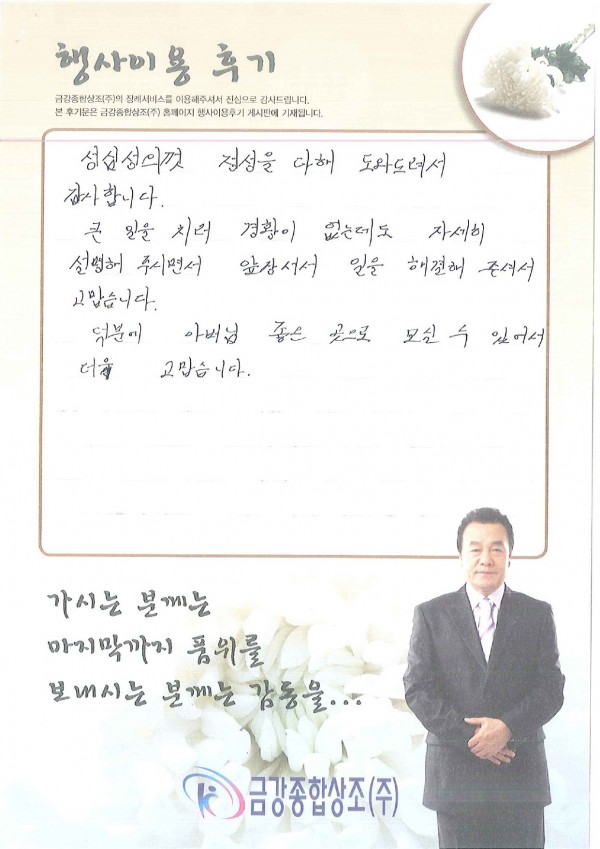 행사이용 후기
금강종합상조(주)의 장례서비스를 이용해주셔서 진심으로 감사드립니다.
본 후기문은 금강종합상조(주) 홈페이지 행사이용후기 게시판에 기재됩니다.
성심성의껏 정성을 다해 도와드려서
감사합니다.
큰 일을 치러 경황이 없는데도 자세히
설명해 주시면서 앞장서서 일을 해결해 주셔서
고맙습니다.
덕분에 아버님 좋은 곳으로 모실 수 있어서
더욱 고맙습니다.
가시는 분께는
마지막까지 품위를
보내시는 분께는 감동을...
금강종합상조(주)